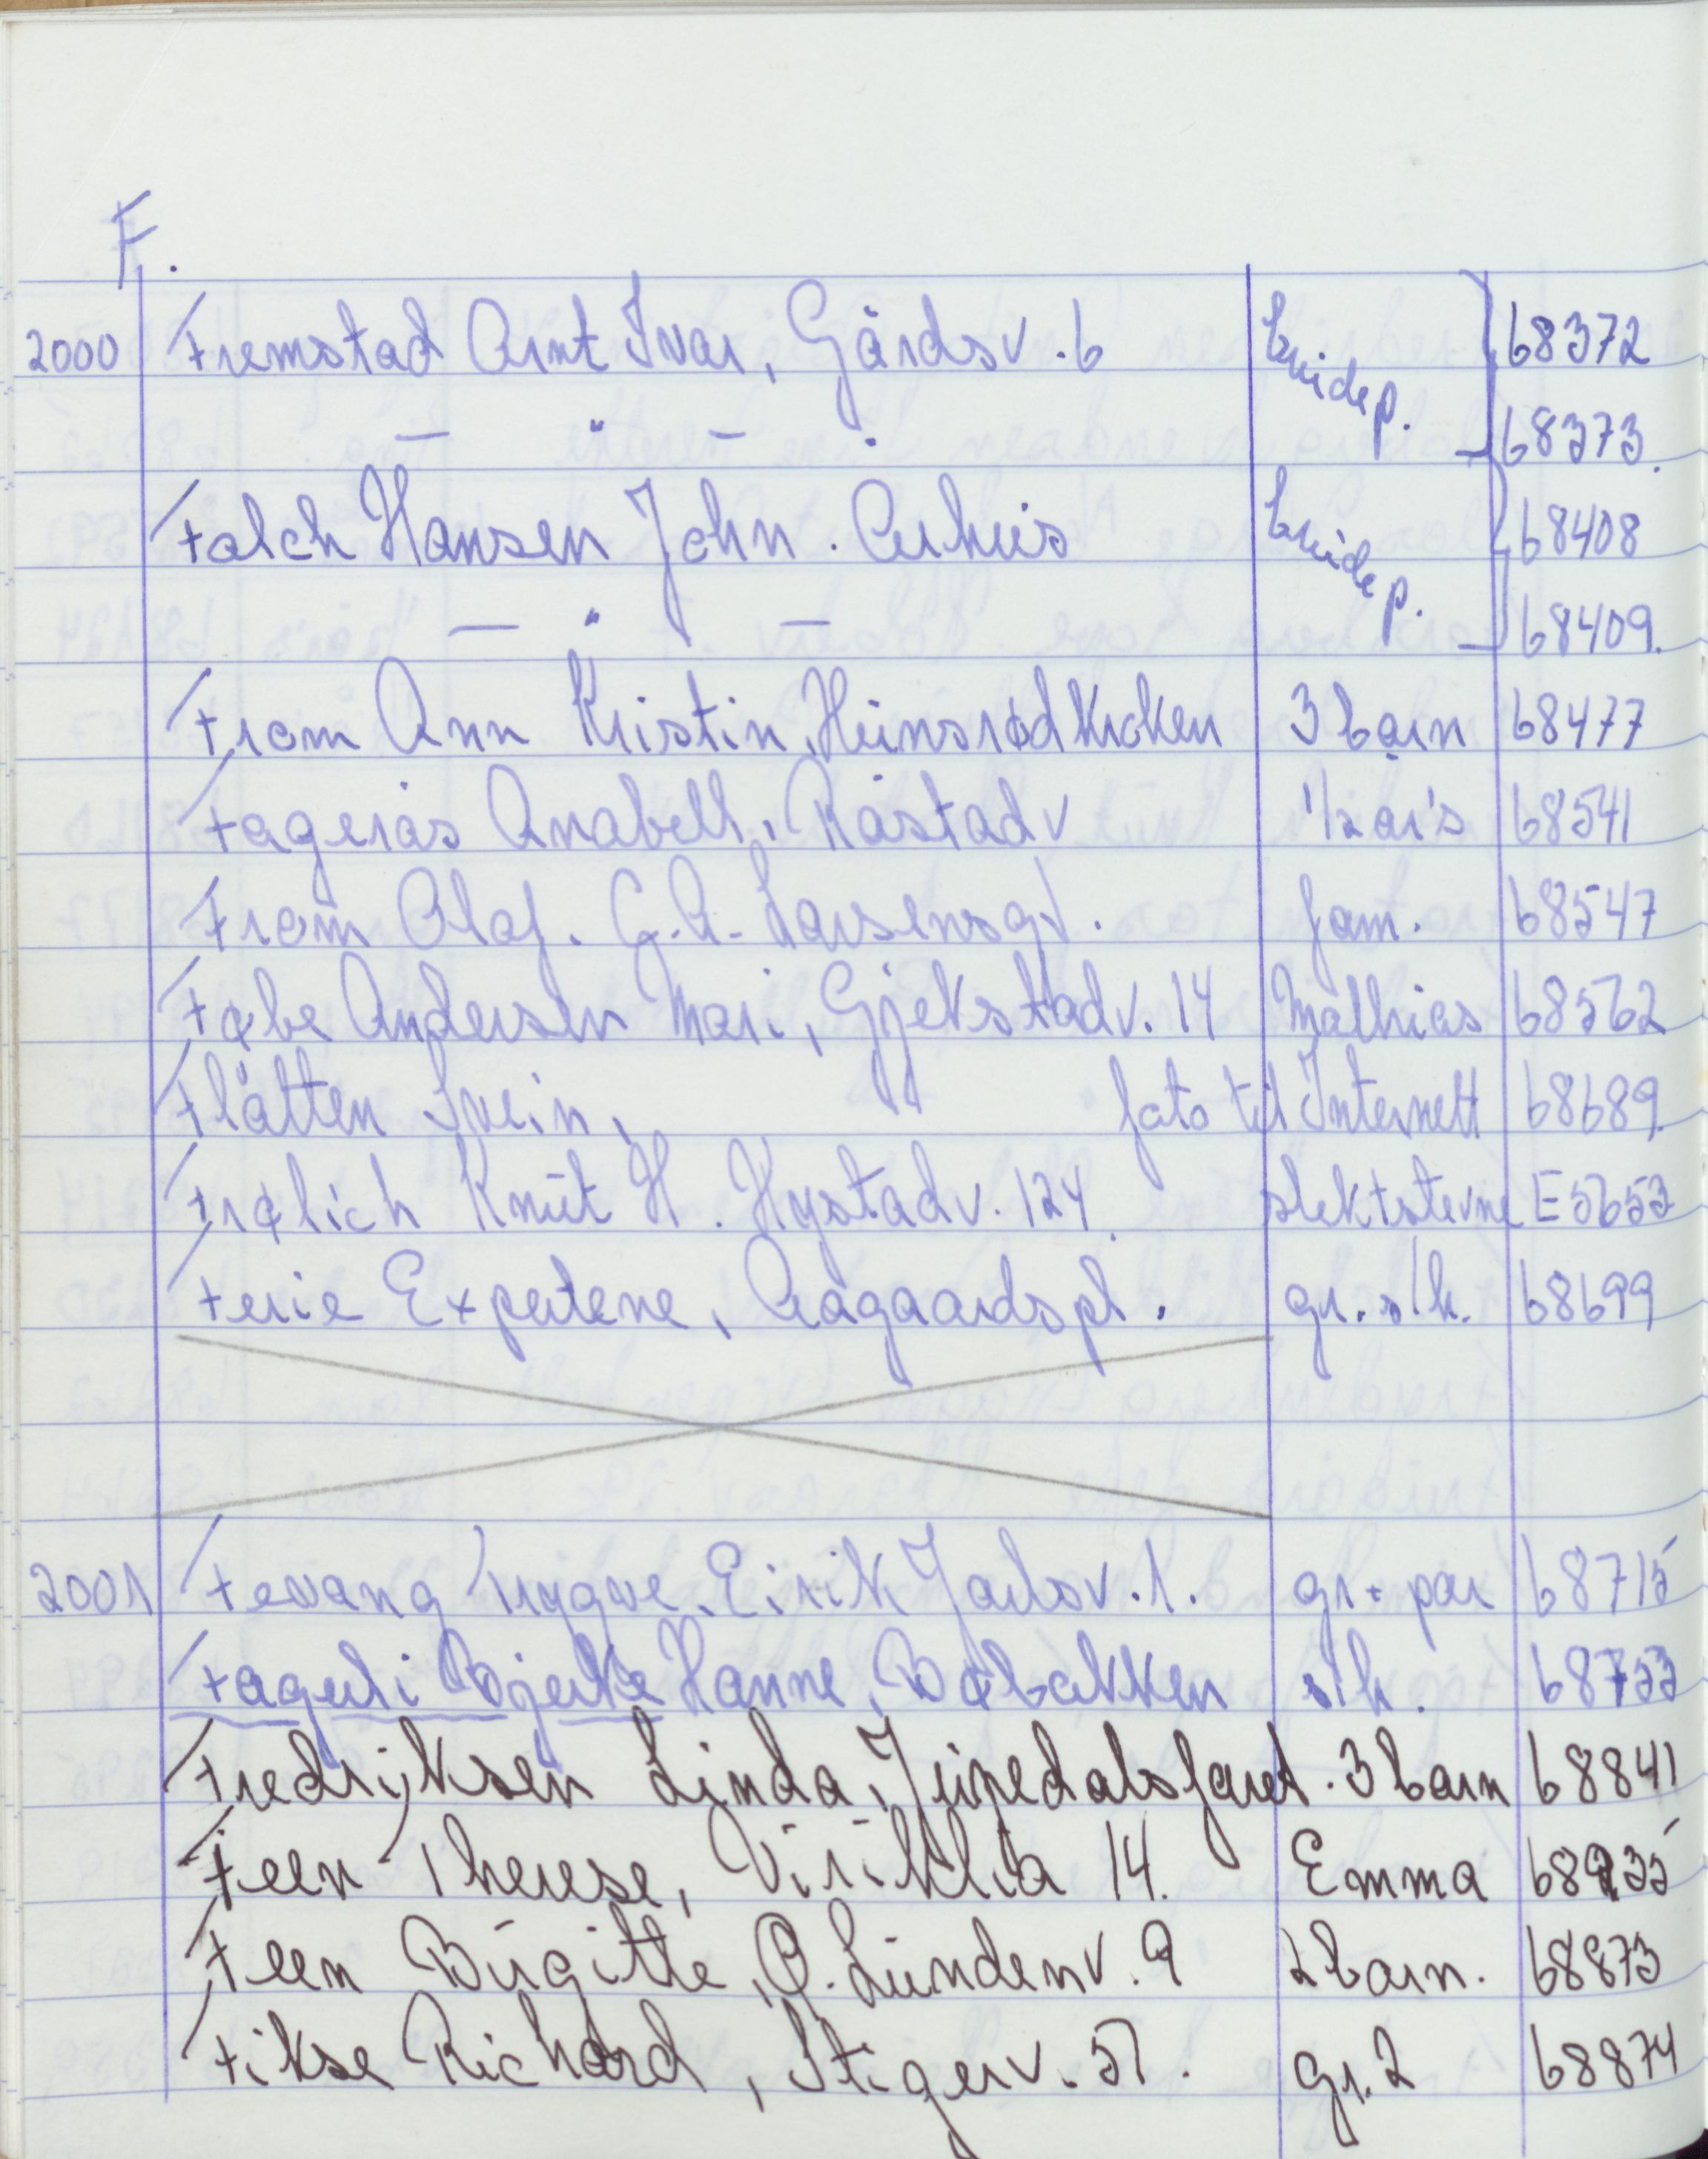 F.
2000 Fremstad Arnt Ivar, Gårdsv. 6 brudep. 68372
— " — " 68373.
Falch Hansen John. Aarhus brudep. 68408
— " — 68409.
From Ann Kristin, Heimsrødkroken 3 barn 68477
Fagerås Anabell, Råstadv 1/2 år's 68541
From Olaf. C.A. Larsensgt. fam. 68547
Føbe Andersen Mari, Gjekstadv. 14 Mathias 68562
Flåtten Svein, foto til Internett 68689.
Frølich Knut H. Hystadv. 124. slektstevne E5653
Ferie Expertene, Aagaardspl. gr. s/h. 68699
2001 Fevang Trygve, Eirik Jarlsv. 1. gr + par 68715
Fagerli Bjerke Hanne, Bøbakken s/h. 68733
Fredriksen Linda, Jurpedalsfaret. 3 barn 68841
Feen Therese, Viriklia 14. Emma
Feen Birgitte, O. Lundenv. 9 2 barn. 68873
Fikse Richard, Stigerv. 57. gr. 2 68874